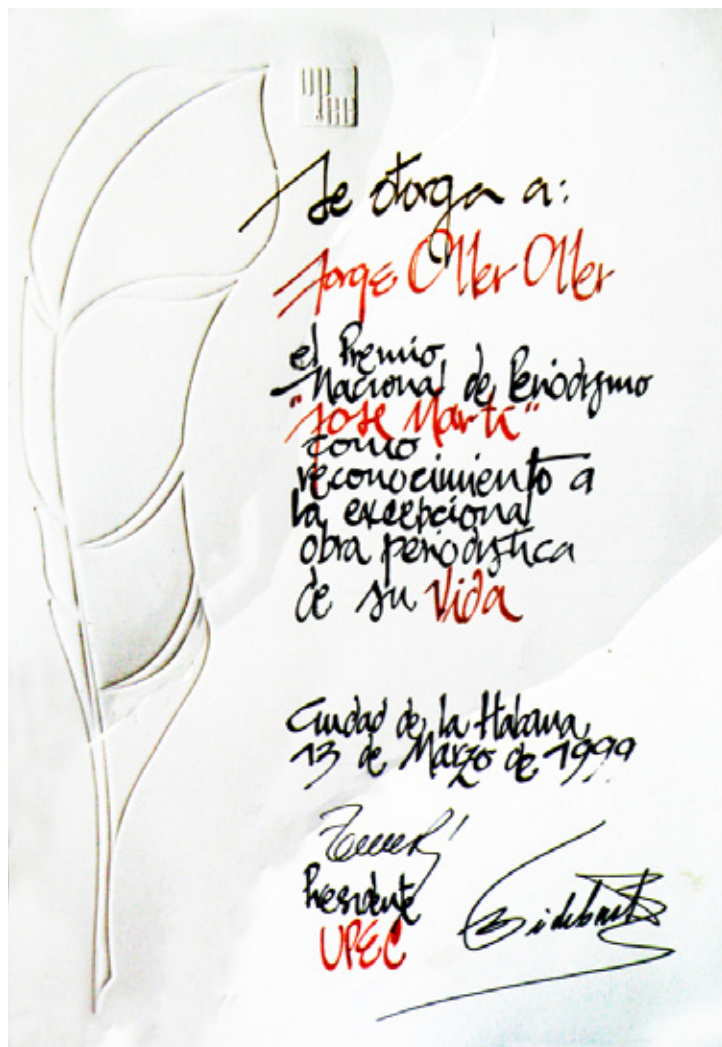 UPEC
Se otorga a:
Jorge Oller Oller
el Premio
Nacional de Periodismo
"José Martí"
como
reconocimiento a
la excepcional
obra periodística
de su Vida
Ciudad de la Habana,
13 de Marzo de 1999
Presidente
UPEC